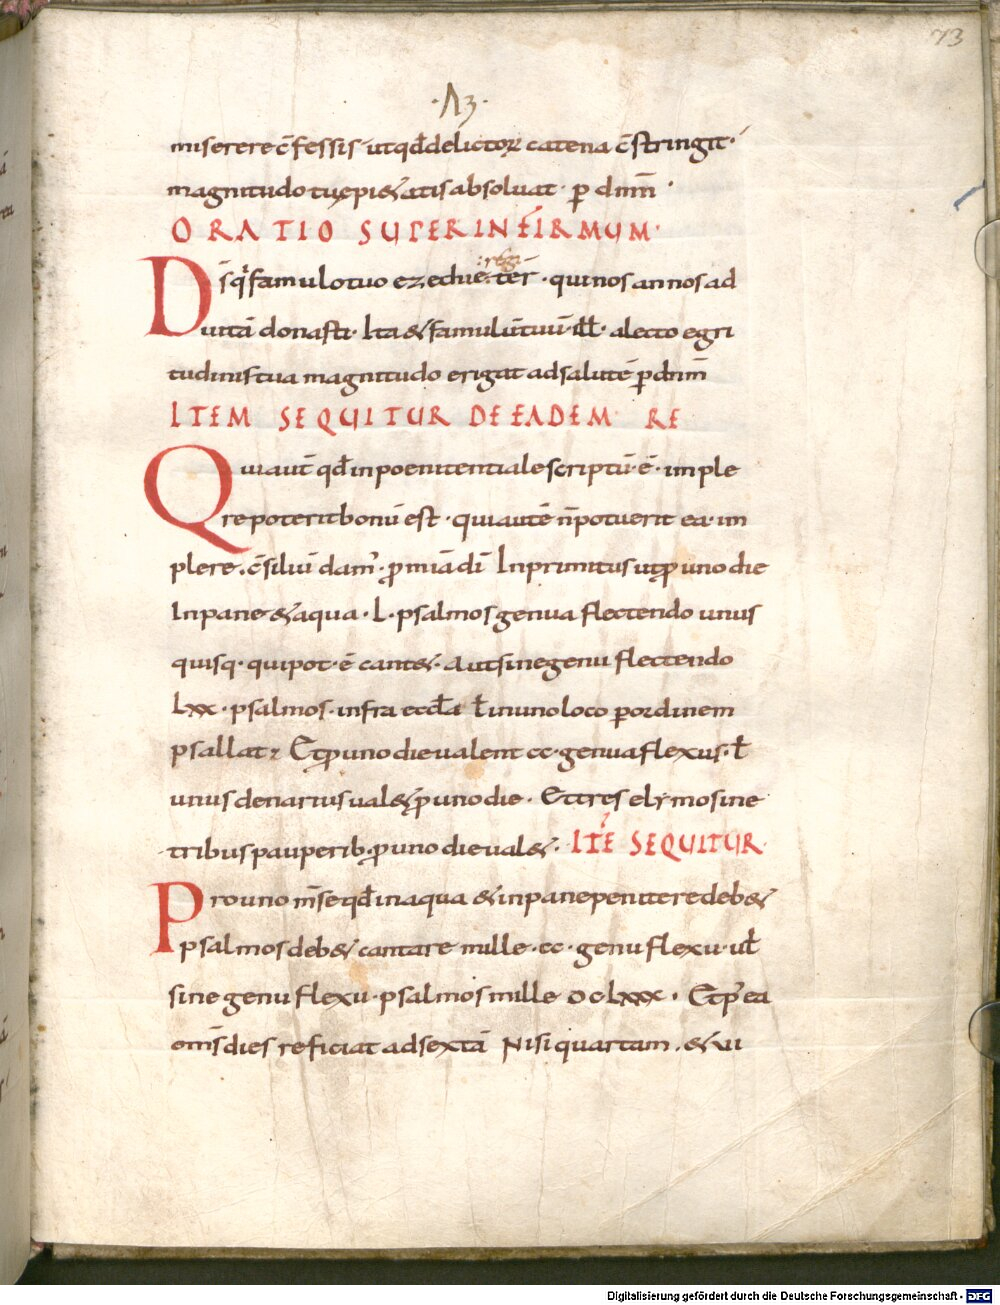 73
·Λ3·
miserere c̄fessis · ut qđ delictoꝝ catena c̄stringit ·
magnitudo tuę pi&atis absoluat · ꝑ dnm̄ ·
ORATIO SUPER INFIRMUM ·
regi
Ds̄ q̄ famulo tuo ezechie · ter̄ · quinos annos ad
uitā donasti · Ita & famulū tuū · ill̄ · a lecto egri
tudinis tua magnitudo erigat ad salutē ꝑ dnm̄
ITEM SEQUITUR DE EADEM RE
Qui aut̄ qđ in poenitentiale scriptū · ē · imple
re poterit bonū est · qui autē n̄ potuerit ea · im
plere · c̄siliū dam' · ꝑ miā dī Inprimitus ut ꝓ uno die
In pane & aqua · L · psalmos genua flectendo unus
quisq · qui pot · ē cant& · Aut sine genu flectendo
Lxx · psalmos · infra eccła ł in uno loco ꝑ ordinem
psallat Et ꝓ uno die ualent cc · genua flexus · ł
unus denarius ual& ꝓ uno die · Et tres elymosine
tribus pauperib · ꝓ uno die ual& · ITĒ SEQUITUR
Pro uno m̄se qđ in aqua & in pane penitere deb&
psalmos deb& cantare mille · cc · genu flexu · uł
sine genu flexu · psalmos mille DCLxxx · Et p' ea
om̄s dies reficiat ad sextā Nisi quartam · & ui
Digitalisierung gefördert durch die Deutsche Forschungsgemeinschaft - DFG